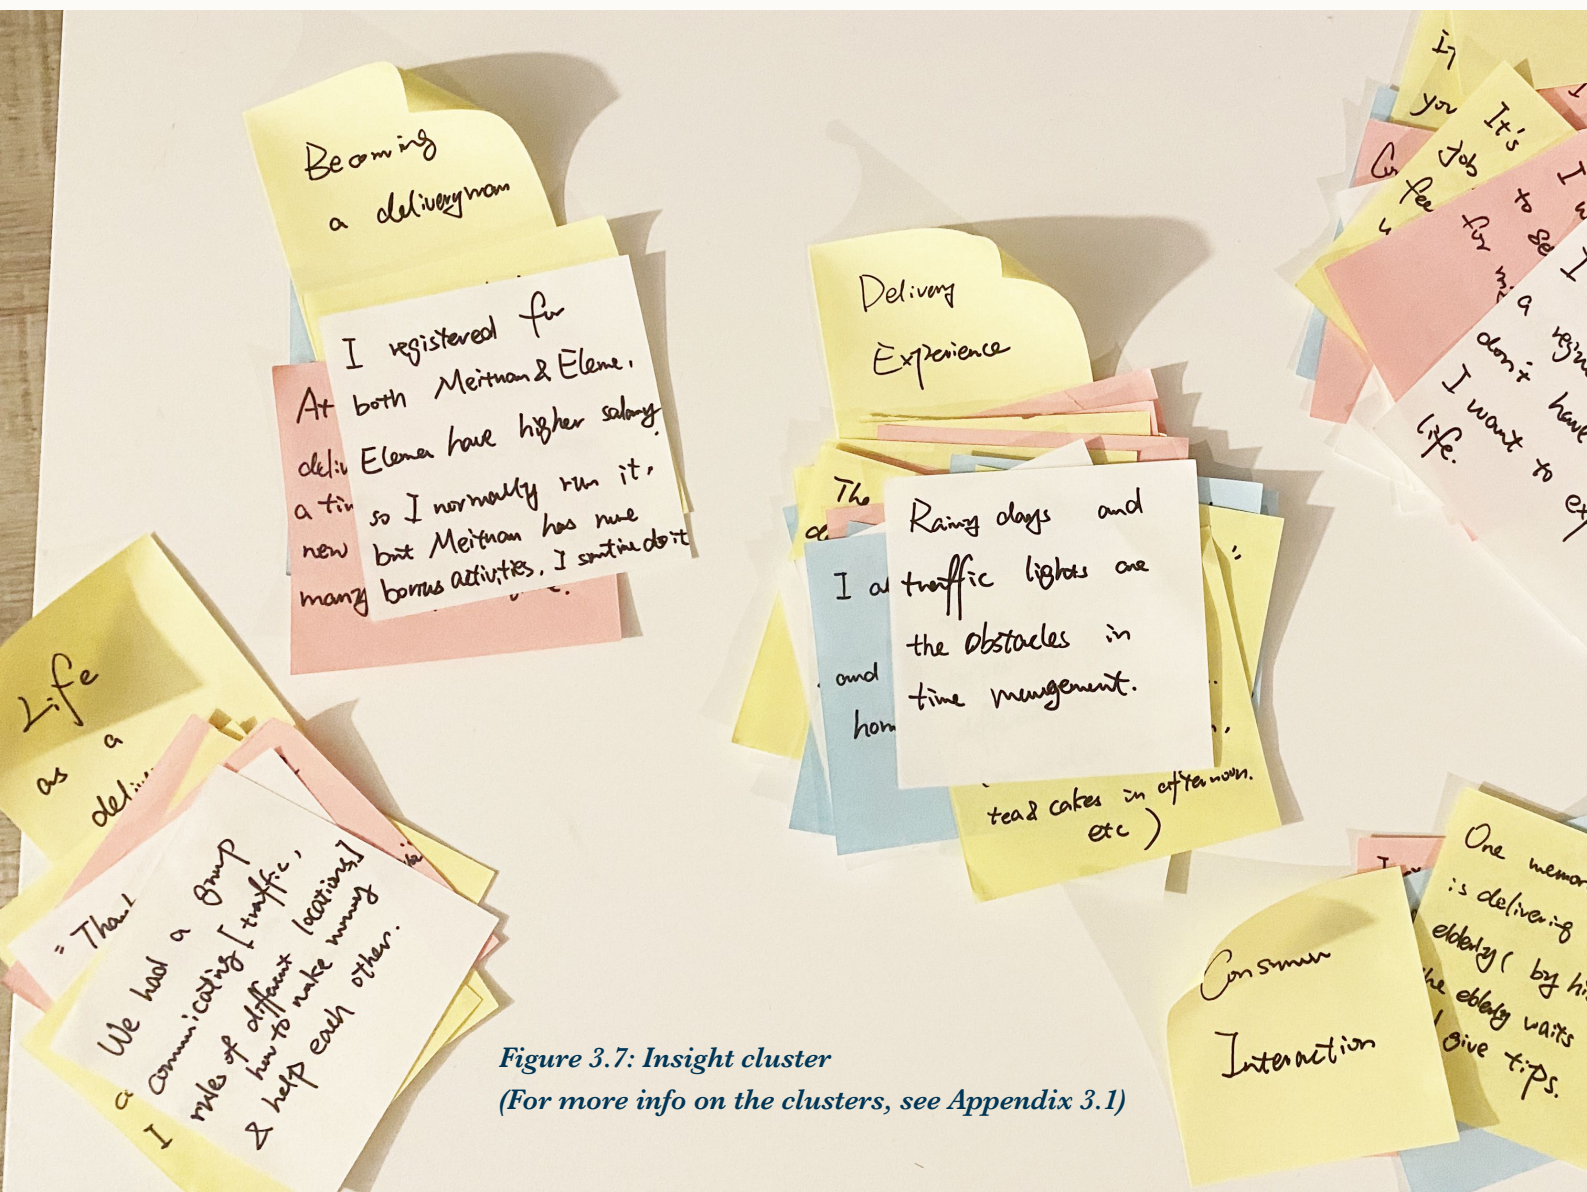 Becoming
a deliveryman
I registered for
both Meituan & Eleme.
Eleme have higher salary
so I normally run it,
but Meituan has more
bonus activities. I somtime do it
At
deliv
a tim
new
many
Delivery
Experience
The
Rainy days and
traffic lights are
the obstacles in
time mangement.
I al
and
hom
tea & cakes in afternoon.
etc )
Life
as a
deli
= Thank
We had a group
communicating [traffic,
rules of different locations]
how to make money
& help each other.
a
I
It's
you
Job
fee
to se
for m
I
a regu
don't have
I want to ex
life.
Consumer
Interaction
One memor
is delivering
elderly ( by hi
the elderly waits
give tips.
Figure 3.7: Insight cluster
(For more info on the clusters, see Appendix 3.1)